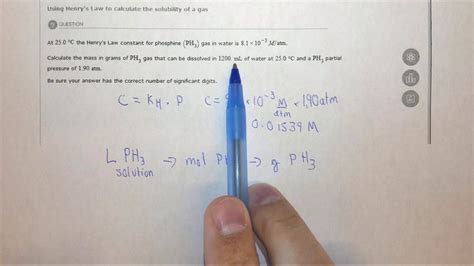 Using Henry's Law to calculate the solubility of a gas
? QUESTION
At 25.0 °C the Henry's Law constant for phosphine (PH₃) gas in water is 8.1 × 10⁻³ M/atm.
Calculate the mass in grams of PH₃ gas that can be dissolved in 1200. mL of water at 25.0 °C and a PH₃ partial
pressure of 1.90 atm.
Be sure your answer has the correct number of significant digits.
C = K_H · P C = × 10⁻³ M/atm × 1.90 atm
0.01539 M
L PH₃ solution → mol → g PH₃